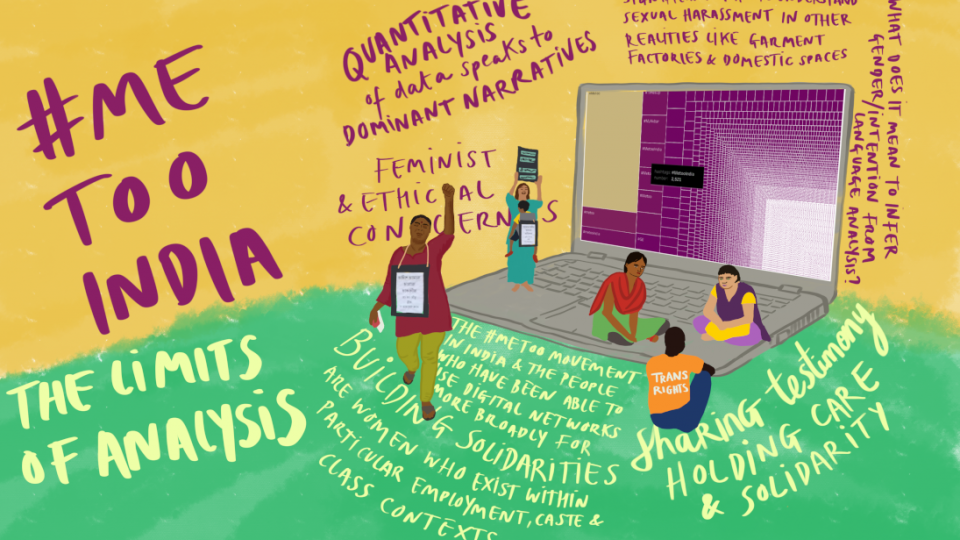 #ME
TOO
INDIA
THE LIMITS
OF ANALYSIS
QUANTITATIVE
ANALYSIS
of data speaks to
DOMINANT NARRATIVES
FEMINIST
& ETHICAL
CONCERNS
SEXUAL HARASSMENT IN OTHER
REALITIES LIKE GARMENT
FACTORIES & DOMESTIC SPACES
WHAT DOES IT MEAN TO INFER
GENDER/INTENTION FROM
LANGUAGE ANALYSIS?
THE #METOO MOVEMENT
IN INDIA & THE PEOPLE
WHO HAVE BEEN ABLE TO
USE DIGITAL NETWORKS
MORE BROADLY FOR
BUILDING SOLIDARITIES
ARE WOMEN WHO EXIST WITHIN
PARTICULAR EMPLOYMENT, CASTE &
CLASS CONTEXTS
TRANS
RIGHTS
Sharing testimony
HOLDING CARE
& SOLIDARITY